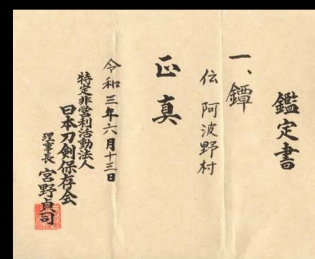 鑑定書
一、鐔
伝 阿波野村
正真
令和三年六月十三日
特定非営利活動法人
日本刀剣保存会
理事長 宮野貞司